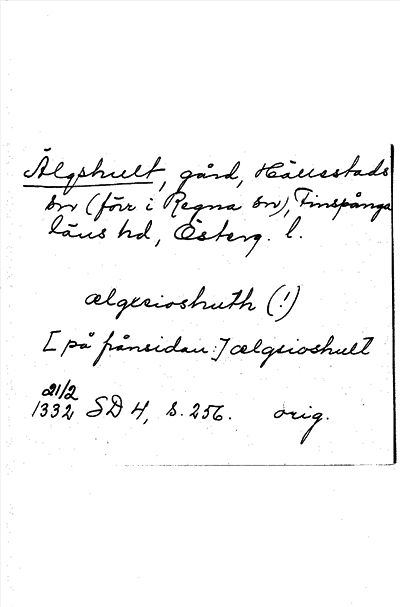 Älgshult, gård, Hällestads
sn (förr i Regna sn), Finspånga
läns hd, Österg. l.
ælgerioshuth (!)
[på frånsidan:] ælgsioshult
21/2
1332 SD 4, s. 256. orig.